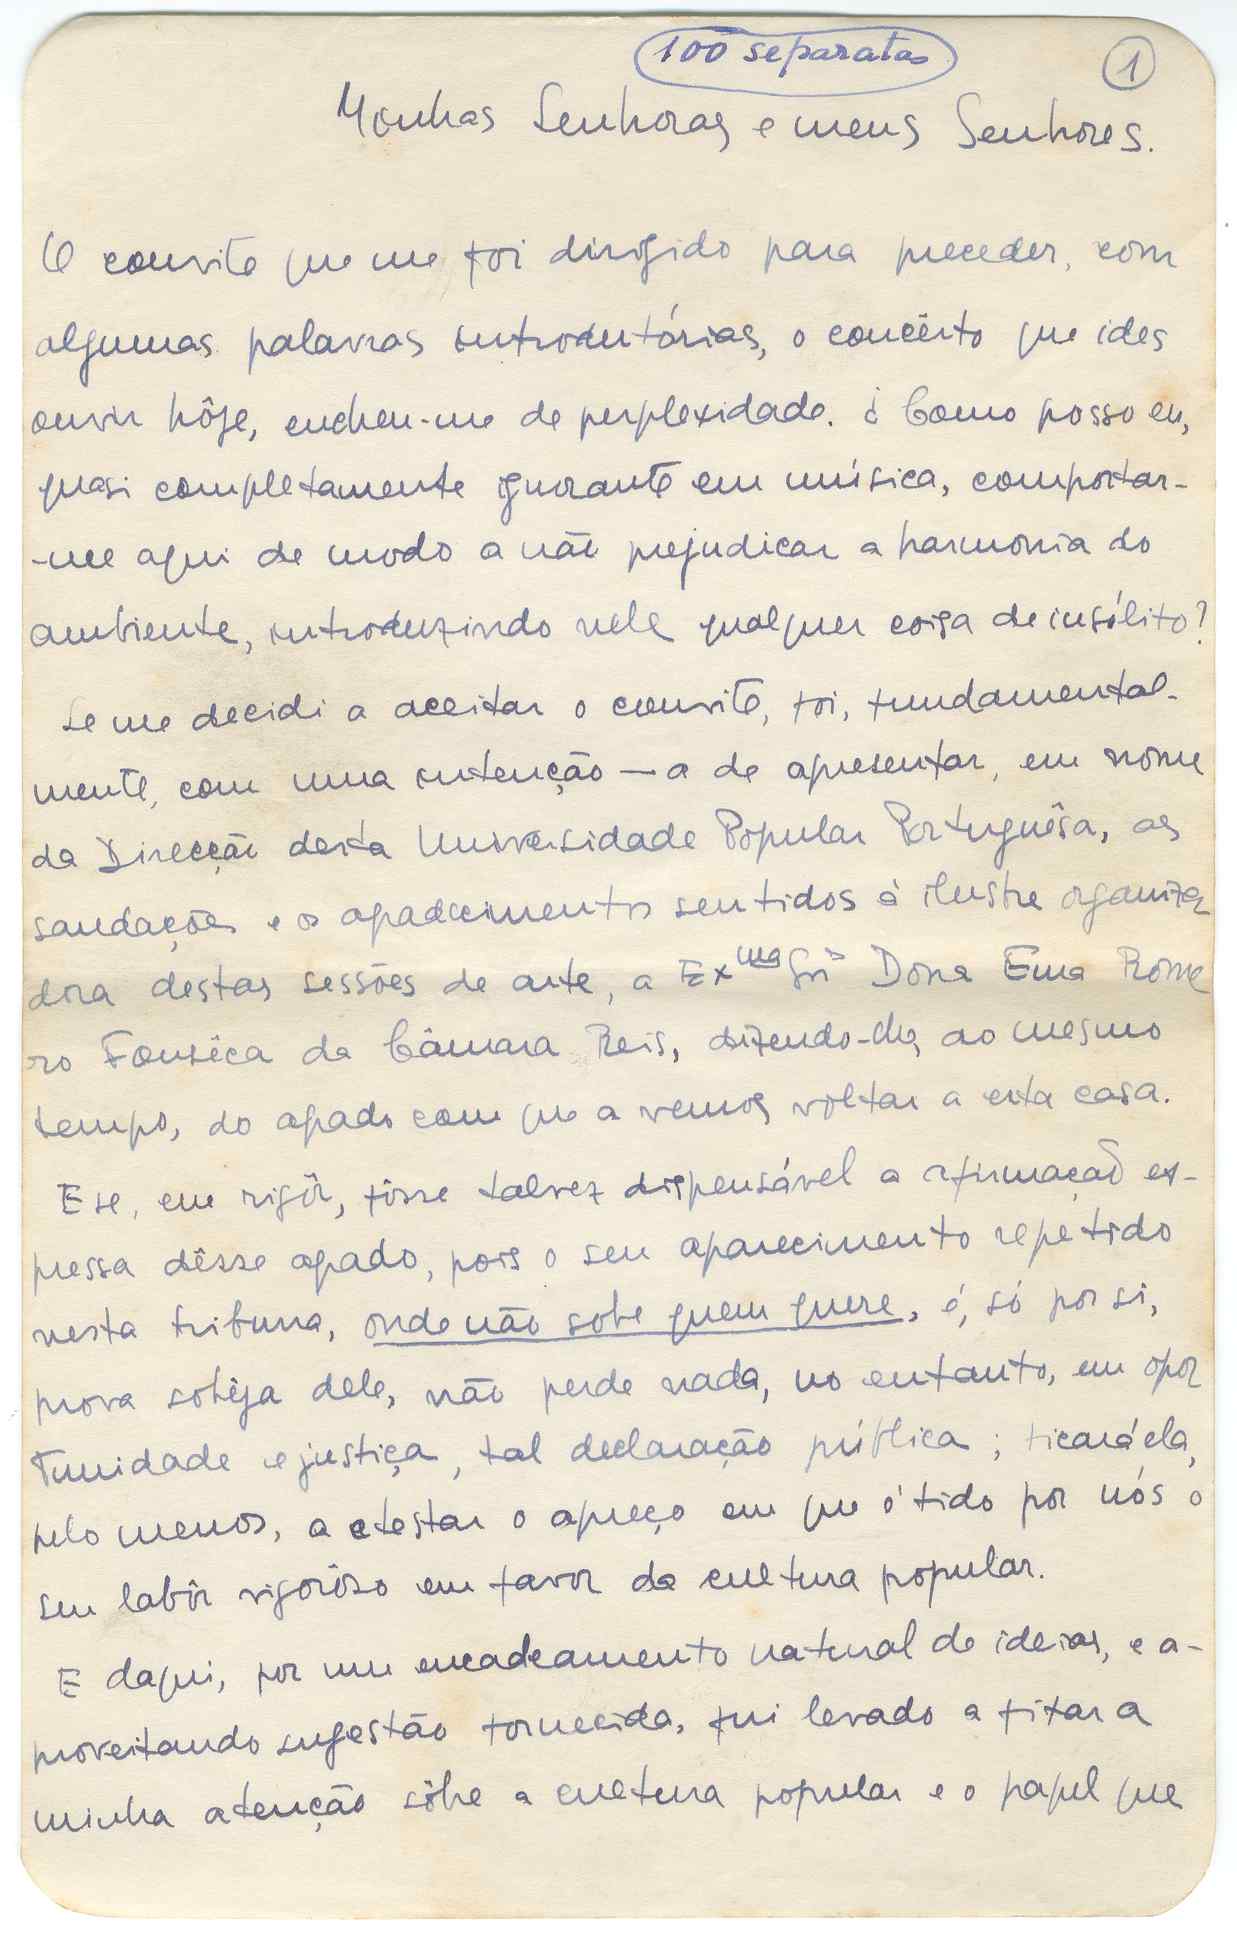 100 separatas
1
Minhas Senhoras e meus Senhores.
O convite que me foi dirigido para preceder, com
algumas palavras introdutórias, o concêrto que ides
ouvir hôje, encheu-me de perplexidade. ¿ Como posso eu,
quasi completamente ignorante em música, comportar-
-me aqui de modo a não prejudicar a harmonia do
ambiente, introduzindo nele qualquer coisa de insólito?
Se me decidi a aceitar o convite, foi, fundamental-
mente, com uma intenção — a de apresentar, em nome
da Direcção desta Universidade Popular Portuguêsa, as
saudações e os agradecimentos sentidos à ilustre organiza
dora destas sessões de arte, a Exma Srª Dona Ema Rome
ro Fonsêca da Câmara Reis, dizendo-lhe, ao mesmo
tempo, do agrado com que a vemos voltar a esta casa.
E se, em rigôr, fôsse talvez dispensável a afirmação ex-
pressa dêsse agrado, pois o seu aparecimento repetido
nesta tribuna, onde não sobe quem quere, é, só por si,
prova sobêja dele, não perde nada, no entanto, em opor
tunidade e justiça, tal declaração pública; ficará ela,
pelo menos, a atestar o apreço em que é tido por nós o
seu labôr vigorôso em favor da cultura popular.
E daqui, por um encadeamento natural de ideias, e a-
proveitando sugestão fornecida, fui levado a fixar a
minha atenção sôbre a cultura popular e o papel que